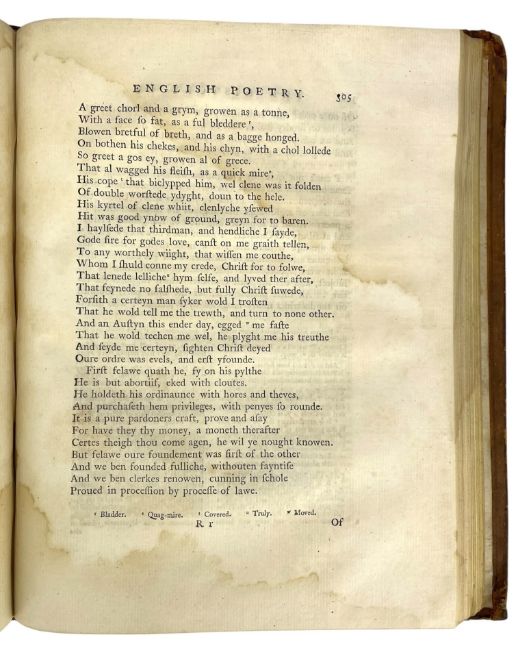 ENGLISH POETRY. 305
A greet chorl and a grym, growen as a tonne,
With a face ſo fat, as a ful bleddere ʳ,
Blowen bretful of breth, and as a bagge honged.
On bothen his chekes, and his chyn, with a chol lollede
So greet a gos ey, growen al of grece.
That al wagged his fleiſh, as a quick mireˢ,
His cope ᵗ that biclypped him, wel clene was it folden
Of double worſtede ydyght, doun to the hele.
His kyrtel of clene whiit, clenlyche yſewed
Hit was good ynow of ground, greyn for to baren.
I haylſede that thirdman, and hendliche I ſayde,
Gode ſire for godes love, canſt on me graith tellen,
To any worthely wiight, that wiſſen me couthe,
Whom I ſhuld conne my crede, Chriſt for to folwe,
That lenede lelliche ᵘ hym ſelfe, and lyved ther after,
That feynede no falſhede, but fully Chriſt ſuwede,
Forſith a certeyn man ſyker wold I troſten
That he wold tell me the trewth, and turn to none other.
And an Auſtyn this ender day, egged ʷ me faſte
That he wold techen me wel, he plyght me his treuthe
And ſeyde me certeyn, ſighten Chriſt deyed
Oure ordre was evels, and erſt yfounde.
Firſt felawe quath he, fy on his pylthe
He is but abortiif, eked with cloutes.
He holdeth his ordinaunce with hores and theves,
And purchaſeth hem privileges, with penyes ſo rounde.
It is a pure pardoners craft, prove and aſay
For have they thy money, a moneth therafter
Certes theigh thou come agen, he wil ye nought knowen.
But felawe oure foundement was firſt of the other
And we ben founded fulliche, withouten fayntiſe
And we ben clerkes renowen, cunning in ſchole
Proued in proceſſion by proceſſe of lawe.
ʳ Bladder. ˢ Quag-mire. ᵗ Covered. ᵘ Truly. ʷ Moved.
R r Of